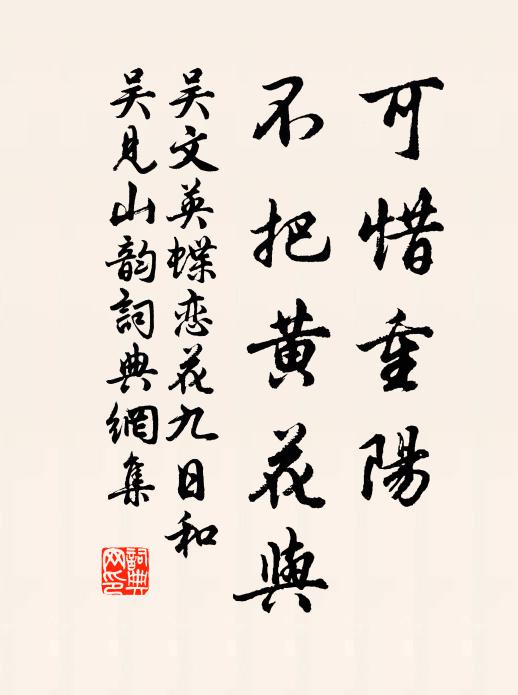 可惜重陽
不把黄花與
吴文英蝶恋花九日和
吴見山韵詞典網集
詞典网印